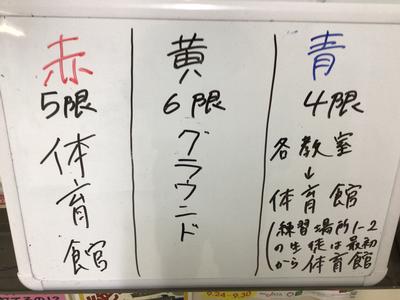 赤
5限
体育館
黄
6限
グラウンド
青
4限
各教室
↓
体育館
練習場所1-2
の生徒は最初
から体育館
9.24-9.30